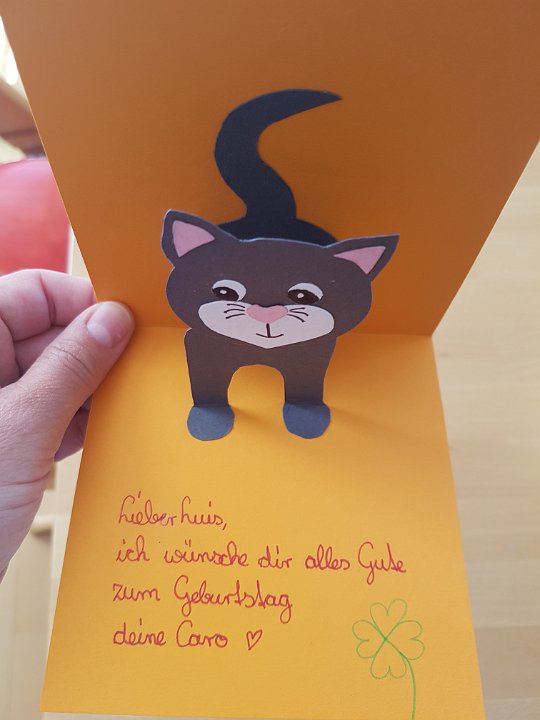 Lieber Luis,
ich wünsche dir alles Gute
zum Geburtstag
deine Caro ♡